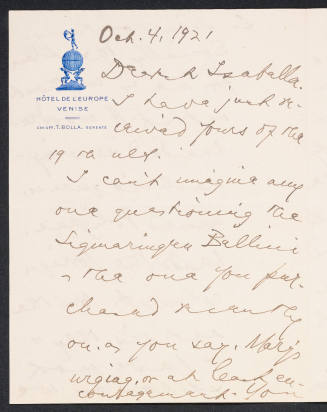 Oct. 4, 1921
HÔTEL DE L'EUROPE
VENISE
CHEVR. T. BOLLA, GERENTE
Dearest Isabella.
I have just re-
ceived yours of the
19th ult.
I can't imagine any
one questioning the
Sigmaringen Bellini
the one you pur-
chased recently
on, as you say, Mary's
urging, or at least en-
couragement. You